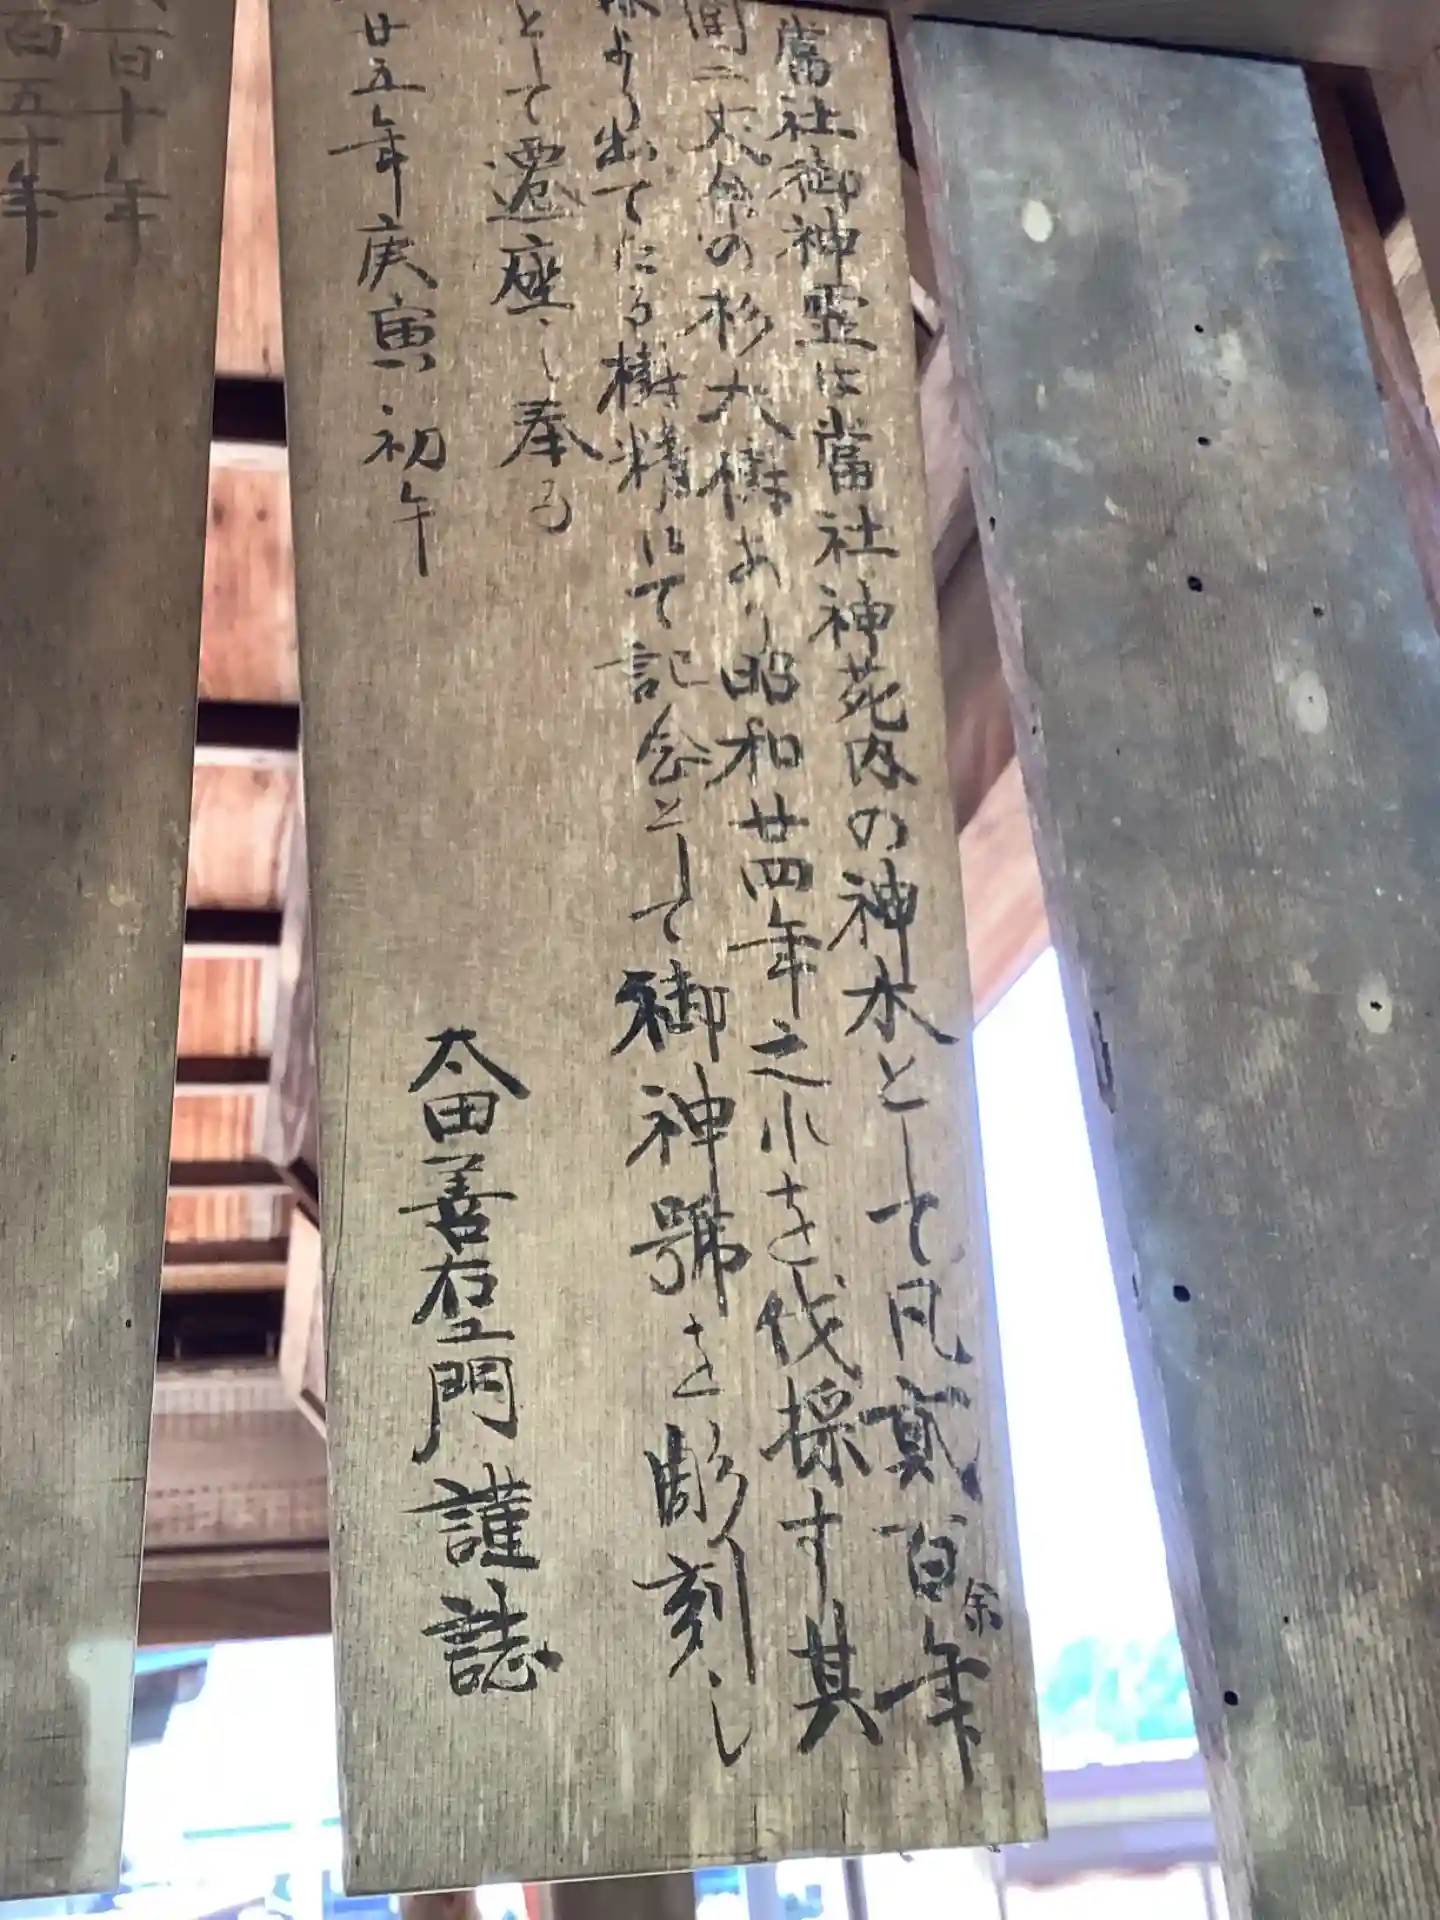 當社御神霊は當社神苑内の神木として凡貳百余年
間二丈余の杉大樹あり昭和廿四年之小を伐採す其
より出てたる樹精にて記念として御神號を彫刻し
として遷座し奉る
廿五年庚寅初午
太田善右エ門謹誌
百十年
百五十年